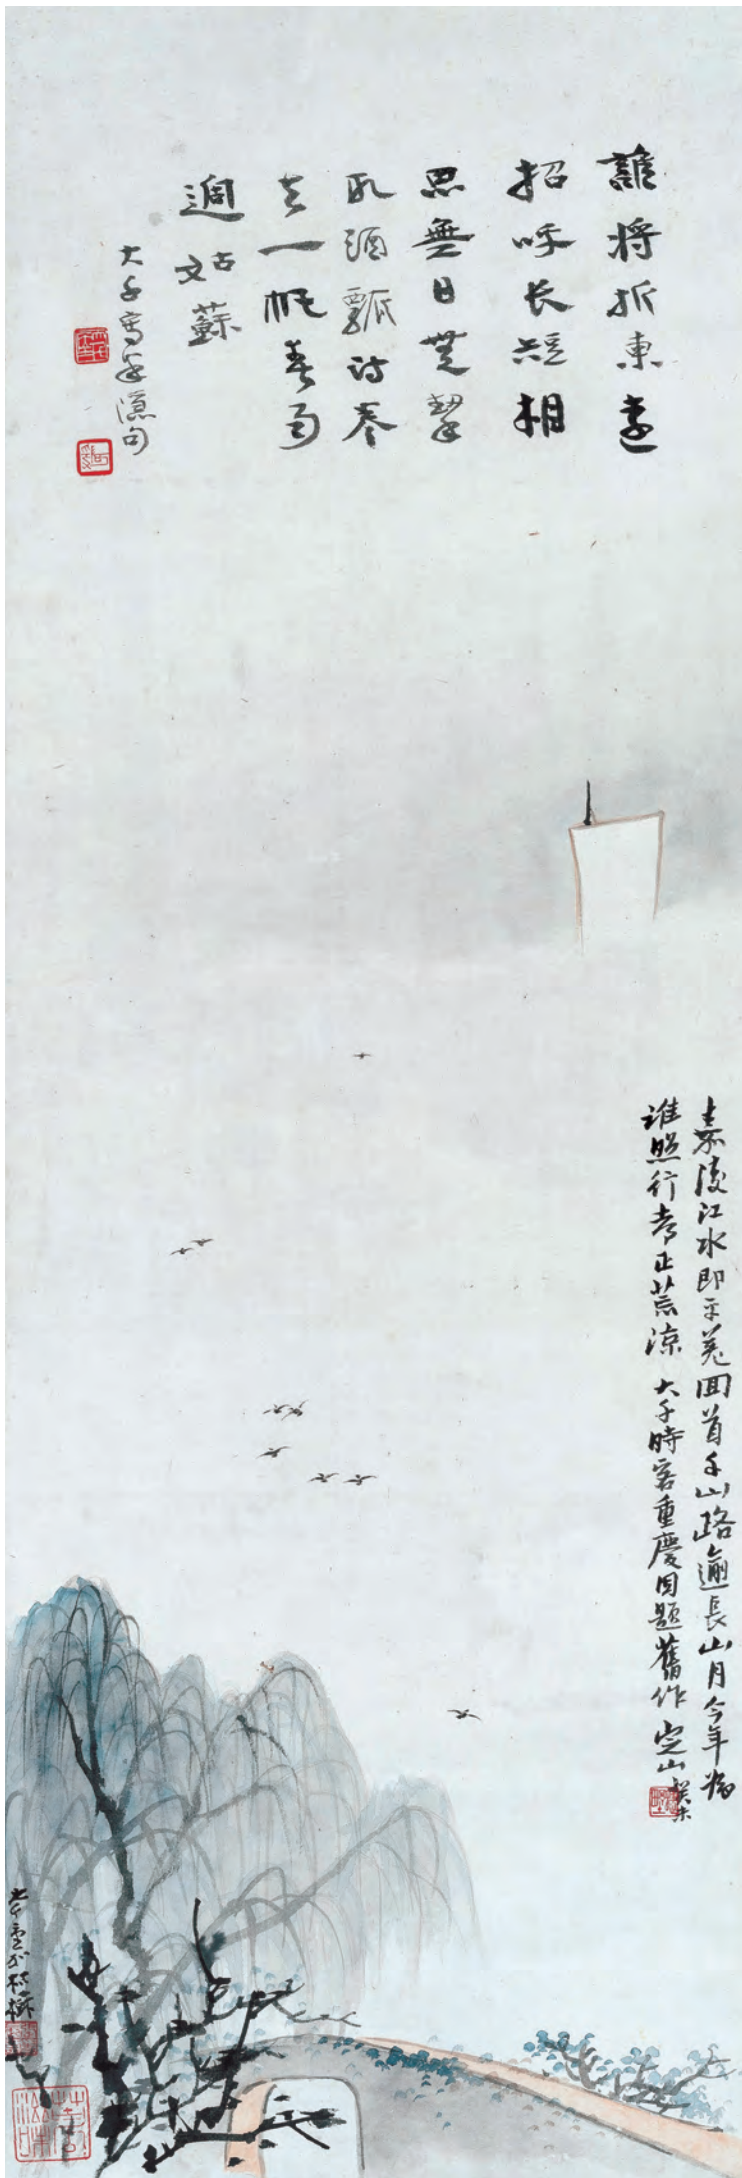 誰將折柬遠
招呼长短相
思無日無挈
取酒瓢诗卷
去一帆春雨
過姑蘇
大千寫隱句
嘉陵江水即平羌囬首千山路長山月今年為
誰照行春正荒凉 大千時客重慶因題舊作 定山 癸未